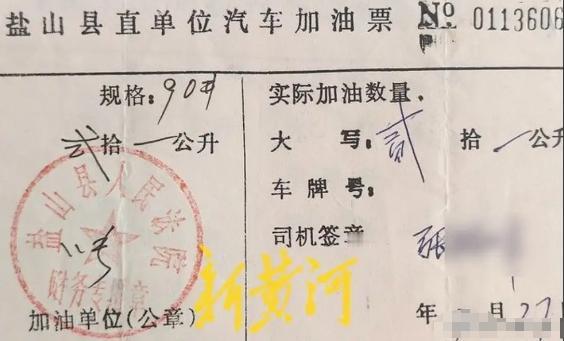 盐山县直单位汽车加油票 No 0113606
规格:90#
贰拾一公升
盐山县人民法院
财务专用章
加油单位(公章)
实际加油数量.
大写:贰拾一公升
车牌号:
司机签章 张
年 月27
新黄河